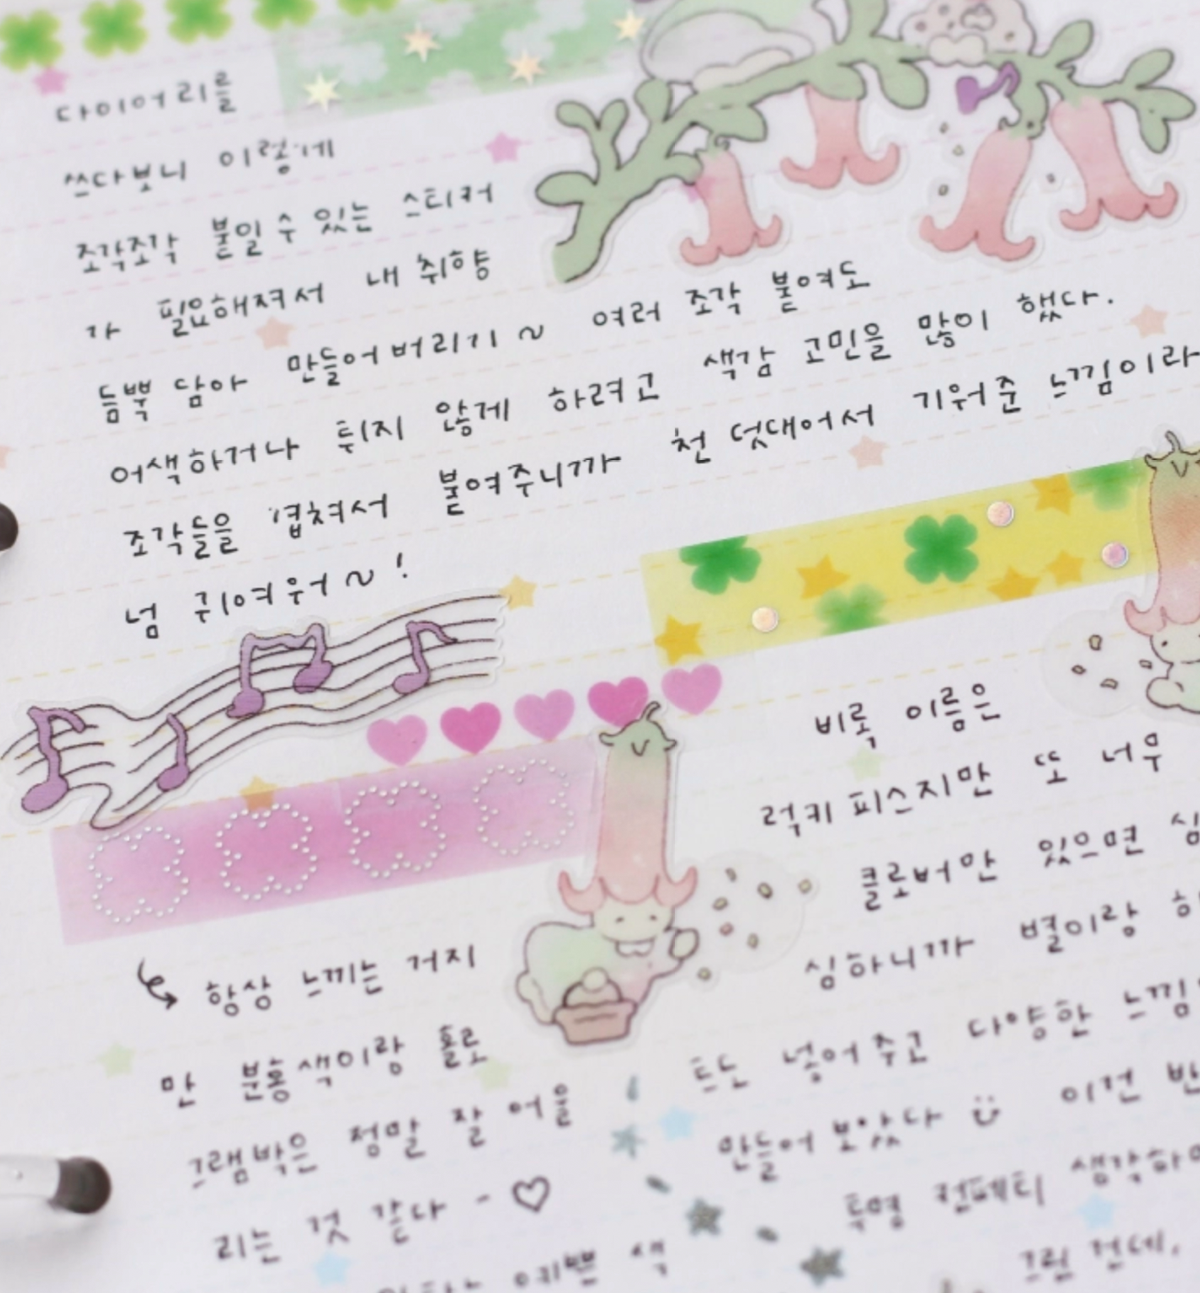 다이어리를
쓰다보니 이렇게
조각조각 붙일 수 있는 스티커
가 필요해져서 내 취향
듬뿍 담아 만들어버리기 ~ 여러 조각 붙여도
어색하거나 튀지 않게 하려고 색감 고민을 많이 했다.
조각들을 겹쳐서 붙여주니까 천 덧대어서 기워준 느낌이라
넘 귀여워 ~ !
항상 느끼는 거지
만 분홍색이랑 홀로
그램박은 정말 잘 어울
리는 것 같다 - ♡
예쁜 색
비록 이름은
럭키 피스지만 또 너무
클로버만 있으면 심
심하니까 별이랑 하
트도 넣어주고 다양한 느낌
만들어 보았다 이런 반
투명 컨페티 생각하
그런 건데,